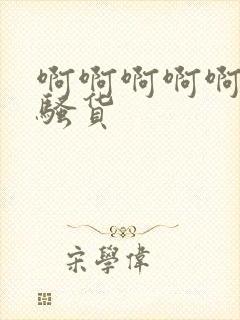 啊啊啊啊啊
骚货
宋學偉